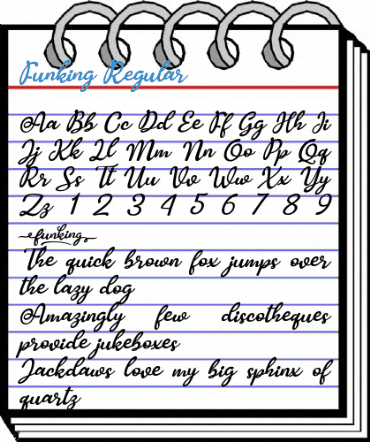 Funking Regular
Aa Bb Cc Dd Ee Ff Gg Hh Ii
Jj Kk Ll Mm Nn Oo Pp Qq
Rr Ss Tt Uu Vv Ww Xx Yy
Zz 1 2 3 4 5 6 7 8 9
funking
The quick brown fox jumps over
the lazy dog
Amazingly few discotheques
provide jukeboxes
Jackdaws love my big sphinx of
quartz